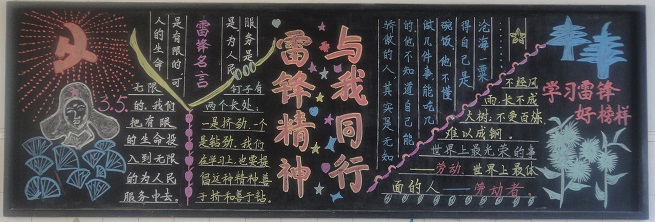 雷锋名言
人的生命
是有限的可
是为人民
服务是
无限
的,我们
把有限
的生命投
入到无限
的为人民
服务中去.
3.5.
钉子有
两个长处:
一是挤劲,一个
是钻劲,我们
在学习上,也要提
倡这种精神善
于挤和善于钻.
雷锋精神
与我同行
骄傲的人,其实是无知
的他不知道自己能
试几件事能吃几
碗饭,他不懂
得自己是
沧海一粟
不经风
雨,长不成
大树;不受百炼,
难以成钢.
世界上最光荣的事
——劳动.世界上最体
面的人——劳动者.
学习雷锋
好榜样